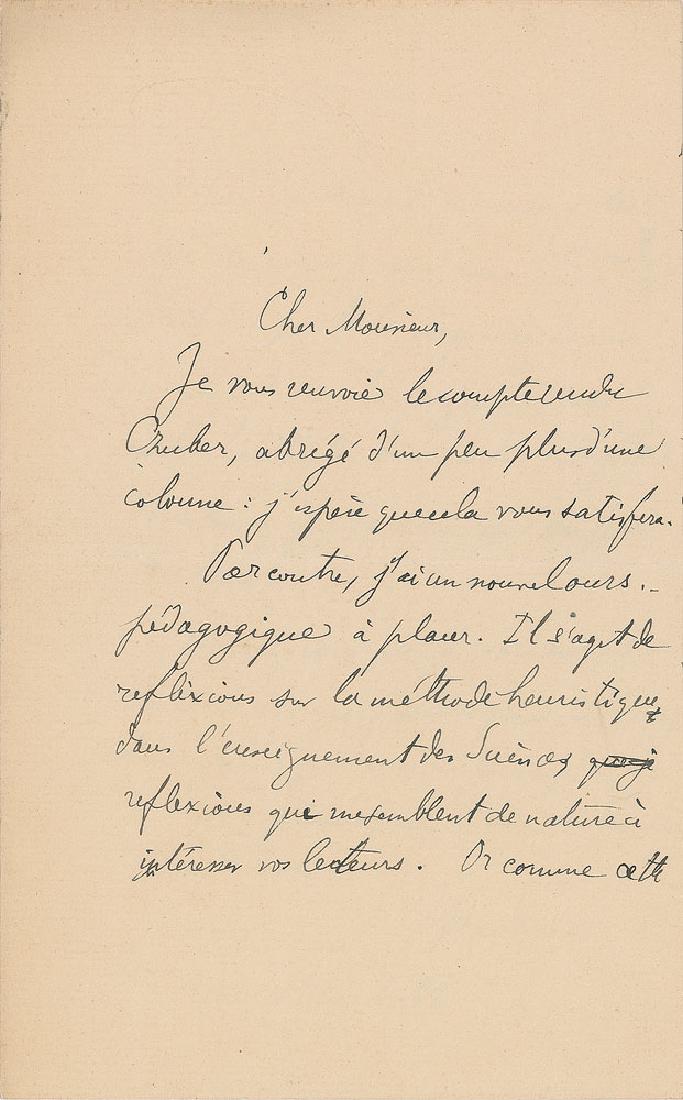 Cher Monsieur,
Je vous renvoie le compte rendu
Czuber, abrégé d'un peu plus d'une
colonne : j'espère que cela vous satisfera.
Par contre, j'ai un nouvel ours
pédagogique à placer. Il s'agit de
reflexions sur la méthode heuristique
dans l'enseignement des Sciences que je
reflexions qui me semblent de nature à
intéresser vos lecteurs. Or comme cette